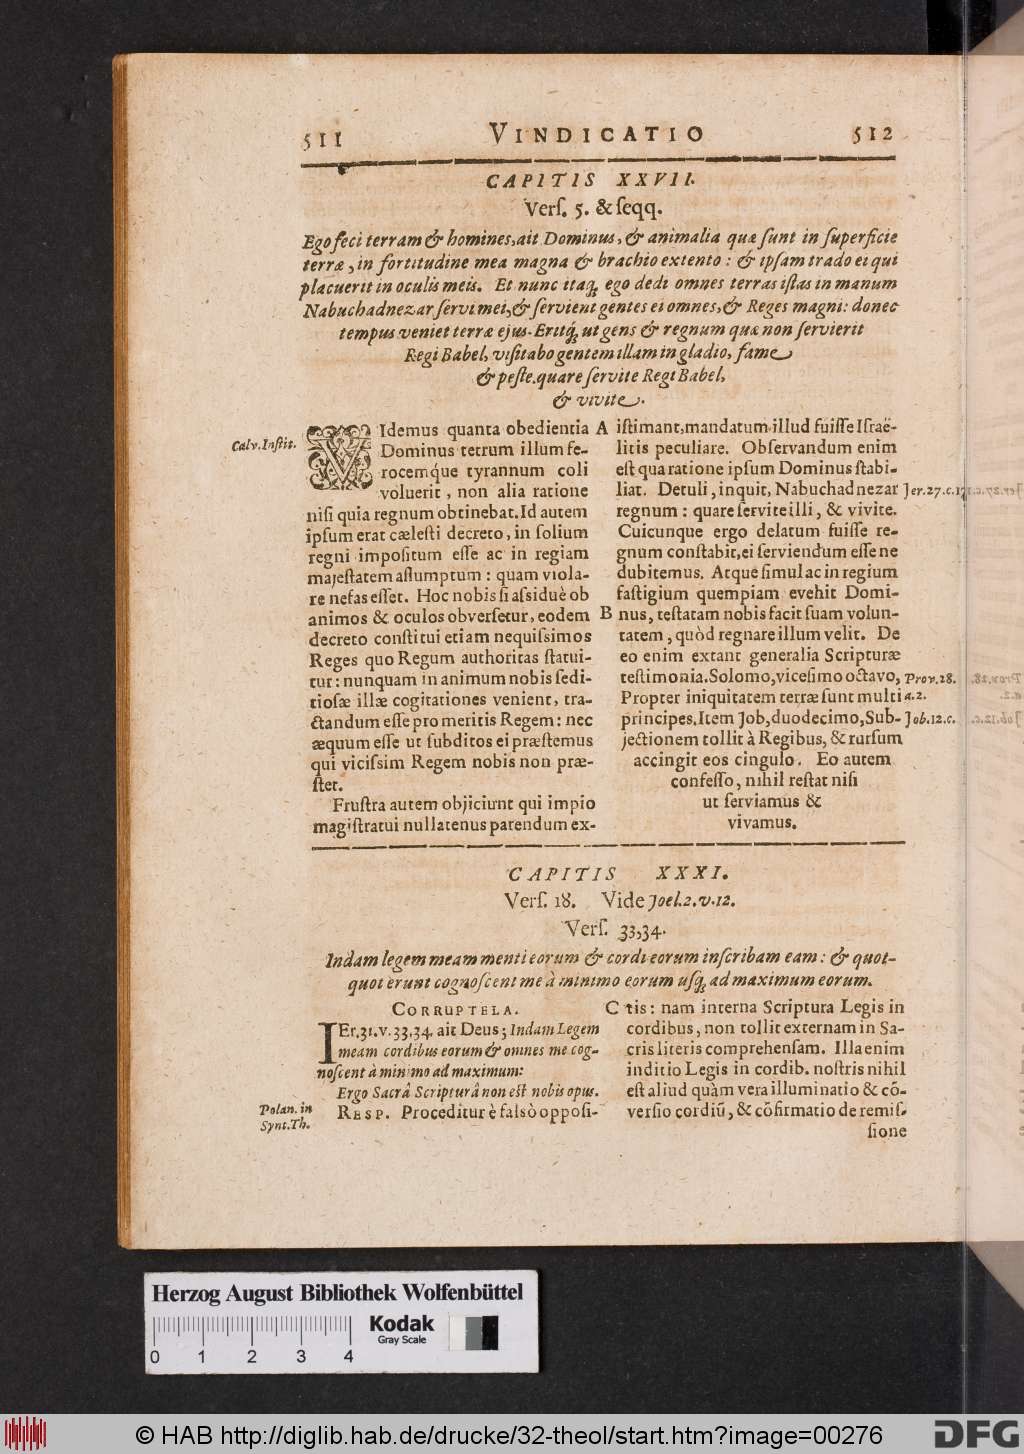 511 VINDICATIO 512
CAPITIS XXVII.
Verſ. 5. & ſeqq.
Ego feci terram & homines, ait Dominus, & animalia quæ ſunt in ſuperficie
terræ, in fortitudine mea magna & brachio extento: & ipſam trado ei qui
placuerit in oculis meis. Et nunc itaq; ego dedi omnes terras iſtas in manum
Nabuchadnezar ſervi mei, & ſervient gentes ei omnes, & Reges magni: donec
tempus veniet terræ ejus. Eritq; ut gens & regnum quæ non ſervierit
Regi Babel, viſitabo gentem illam in gladio, fame
& peſte. quare ſervite Regi Babel,
& vivite.
Calv. Inſtit.
VIdemus quanta obedientia
Dominus tetrum illum fe-
rocemque tyrannum coli
voluerit, non alia ratione
niſi quia regnum obtinebat. Id autem
ipſum erat cæleſti decreto, in ſolium
regni impoſitum eſſe ac in regiam
majeſtatem aſſumptum: quam viola-
re nefas eſſet. Hoc nobis ſi aſsiduè ob
animos & oculos obverſetur, eodem
decreto conſtitui etiam nequiſsimos
Reges quo Regum authoritas ſtatui-
tur: nunquam in animum nobis ſedi-
tioſæ illæ cogitationes venient, tra-
ctandum eſſe pro meritis Regem: nec
æquum eſſe ut ſubditos ei præſtemus
qui viciſsim Regem nobis non præ-
ſtet.
Fruſtra autem objiciunt qui impio
magiſtratui nullatenus parendum ex-
A iſtimant, mandatum illud fuiſſe Iſraë-
litis peculiare. Obſervandum enim
eſt qua ratione ipſum Dominus ſtabi-
liat. Detuli, inquit, Nabuchadnezar Jer. 27. c. 17.
regnum: quare ſervite illi, & vivite.
Cuicunque ergo delatum fuiſſe re-
gnum conſtabit, ei ſerviendum eſſe ne
dubitemus. Atque ſimul ac in regium
faſtigium quempiam evehit Domi-
B nus, teſtatam nobis facit ſuam volun-
tatem, quòd regnare illum velit. De
eo enim extant generalia Scripturæ
teſtimonia. Solomo, viceſimo octavo, Prov. 28.
Propter iniquitatem terræ ſunt multi a. 2.
principes. Item Job, duodecimo, Sub- Job. 12. c.
jectionem tollit à Regibus, & rurſum
accingit eos cingulo. Eo autem
confeſſo, nihil reſtat niſi
ut ſerviamus &
vivamus.
CAPITIS XXXI.
Verſ. 18. Vide Joel. 2. v. 12.
Verſ. 33, 34.
Indam legem meam menti eorum & cordi eorum inſcribam eam: & quot-
quot erunt cognoſcent me à minimo eorum uſq; ad maximum eorum.
CORRUPTELA.
IEr. 31. v. 33. 34. ait Deus; Indam Legem
meam cordibus eorum & omnes me cog-
noſcent à minimo ad maximum:
Ergo Sacrâ Scripturâ non eſt nobis opus.
Polan. in
Synt. Th.
RESP. Proceditur è falsò oppoſi-
C tis: nam interna Scriptura Legis in
cordibus, non tollit externam in Sa-
cris literis comprehenſam. Illa enim
inditio Legis in cordib. noſtris nihil
eſt aliud quàm vera illuminatio & cõ-
verſio cordiũ, & cõfirmatio de remiſ-
ſione
Herzog August Bibliothek Wolfenbüttel
Kodak
Gray Scale
0 1 2 3 4
© HAB http://diglib.hab.de/drucke/32-theol/start.htm?image=00276
DFG